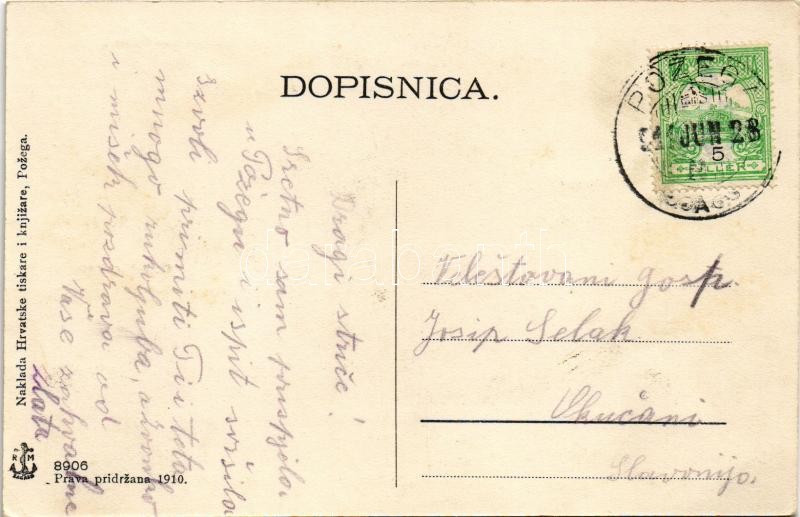 DOPISNICA.
POŽEGA
JUN 28
5
FILLER
Dragi striče!
Sretno sam prispjela
u Požegu i ispit svršila
izvoli primiti Ti i teta
mnogo rukoljuba, a
i mišek pozdrava od
Vaše zahvalne
Zlata
Veleštovani gosp.
Josip Selak
Okučani
Slavonija.
Naklada Hrvatske tiskare i knjižare, Požega.
R M
8906
Prava pridržana 1910.